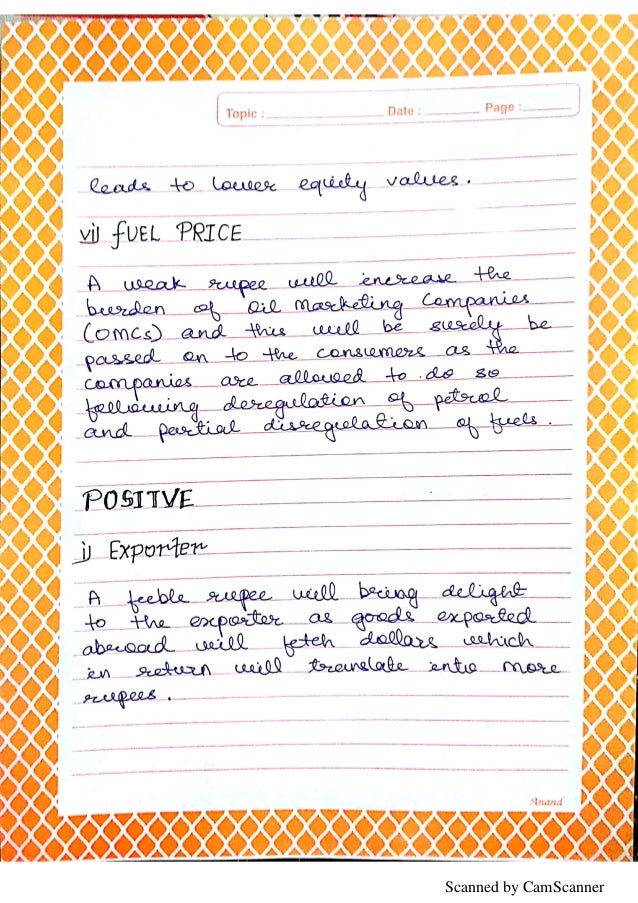 Topic : Date : Page :
leads to lower equity values.
vi) FUEL PRICE
A weak rupee will increase the
burden of Oil Marketing Companies
(OMCs) and this will be surely be
passed on to the consumers as the
companies are allowed to do so
following deregulation of petrol
and partial disregulation of fuels.
POSITVE
i) Exporter
A feeble rupee will bring delight
to the exporter as goods exported
abroad will fetch dollars which
in return will translate into more
rupees.
Anand
Scanned by CamScanner